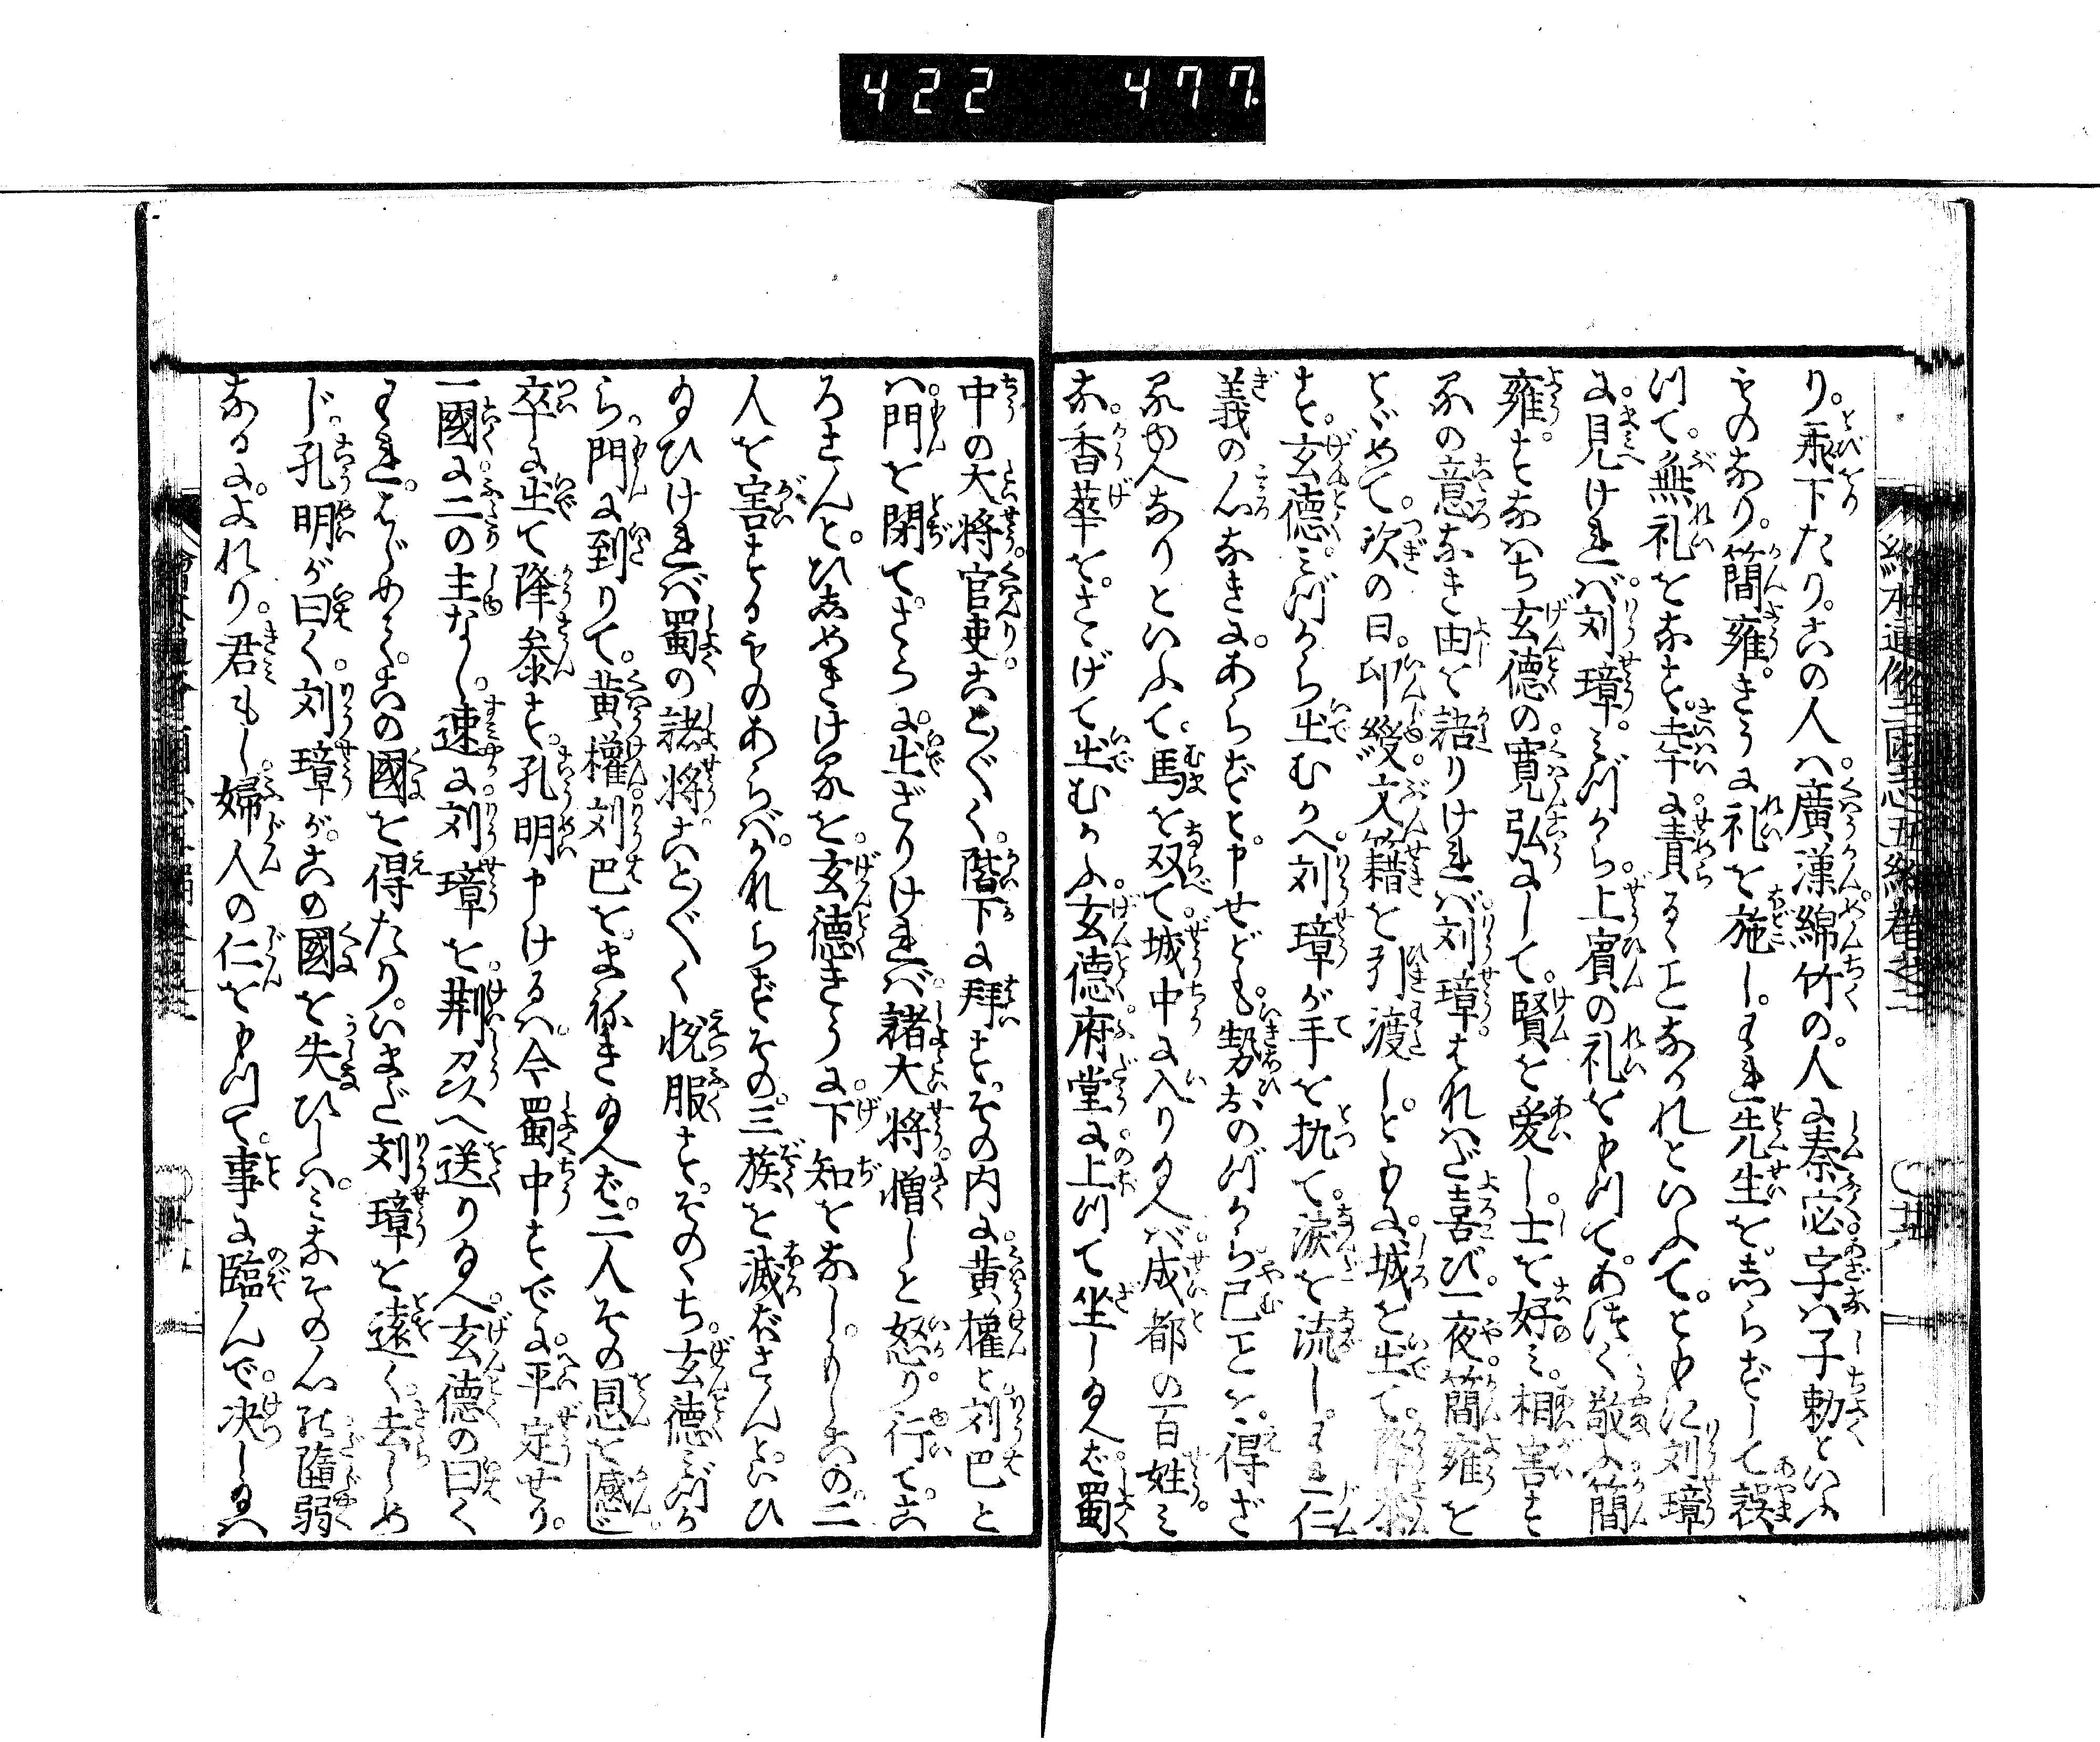 422 477
り。飛下たり。この人ハ廣漢綿竹の人に秦宓字ハ子勅といふ
ものなり。簡雍きうに礼を施し。われ先生を。しらずして誤
つて。無礼をなす。幸に責ることなかれといふて。ともに刘璋
に。見けれバ。刘璋。ミづから。上賓の礼をもつて。あつく敬ふ簡
雍。すなハち玄徳の。寛弘にして。賢を愛し。士を好ミ。相害す
るの意なき由を語りけれバ。刘璋。はなハだ喜び。一夜簡雍を
とゞめて。次の日。印綬。文籍を引渡し。ともに。城を出て。降参
す。玄徳。ミづから出むかへ。刘璋が手を執て。涙を流し。われ仁
義の心なきに。あらずと申せども。勢おのづから已ことを。得ざ
るゆへなりといふて。馬を双て。城中に入り給へバ。成都の百姓ミ
な。香華を。さゝげて出むかふ。玄徳府堂に上つて坐し給へば。蜀
中の大将官吏。ことごとく。階下に拜す。その内に。黄權と刘巴と
ハ門を閉て。さらに。出ざりけれバ。諸大将憎しと怒り行て。こ
ろさんと。ひしめきけるを。玄徳きうに。下知をなし。もしこの。二
人を害するものあらバ。かれらがその。三族を滅ぼさんと。いひ
給ひけれバ。蜀の諸将。ことごとく悦服す。そのゝち。玄徳ミづか
ら門に到りて。黄權刘巴を。まねき給へば。二人その恩を感じ
卒に出て降參す。孔明申けるハ。今蜀中すでに。平定せり。
一國に二の主なし。速に刘璋を。荆州へ送り給へ。玄徳の曰く
われ。はじめて。この國を得たり。いまだ刘璋を遠く。去しめ
じ。孔明が曰く。刘璋が。この國を失ひしハ。ミなその心の懦弱
なるに。よれり。君もし。婦人の仁をもつて。事に臨んで。决し給ハ